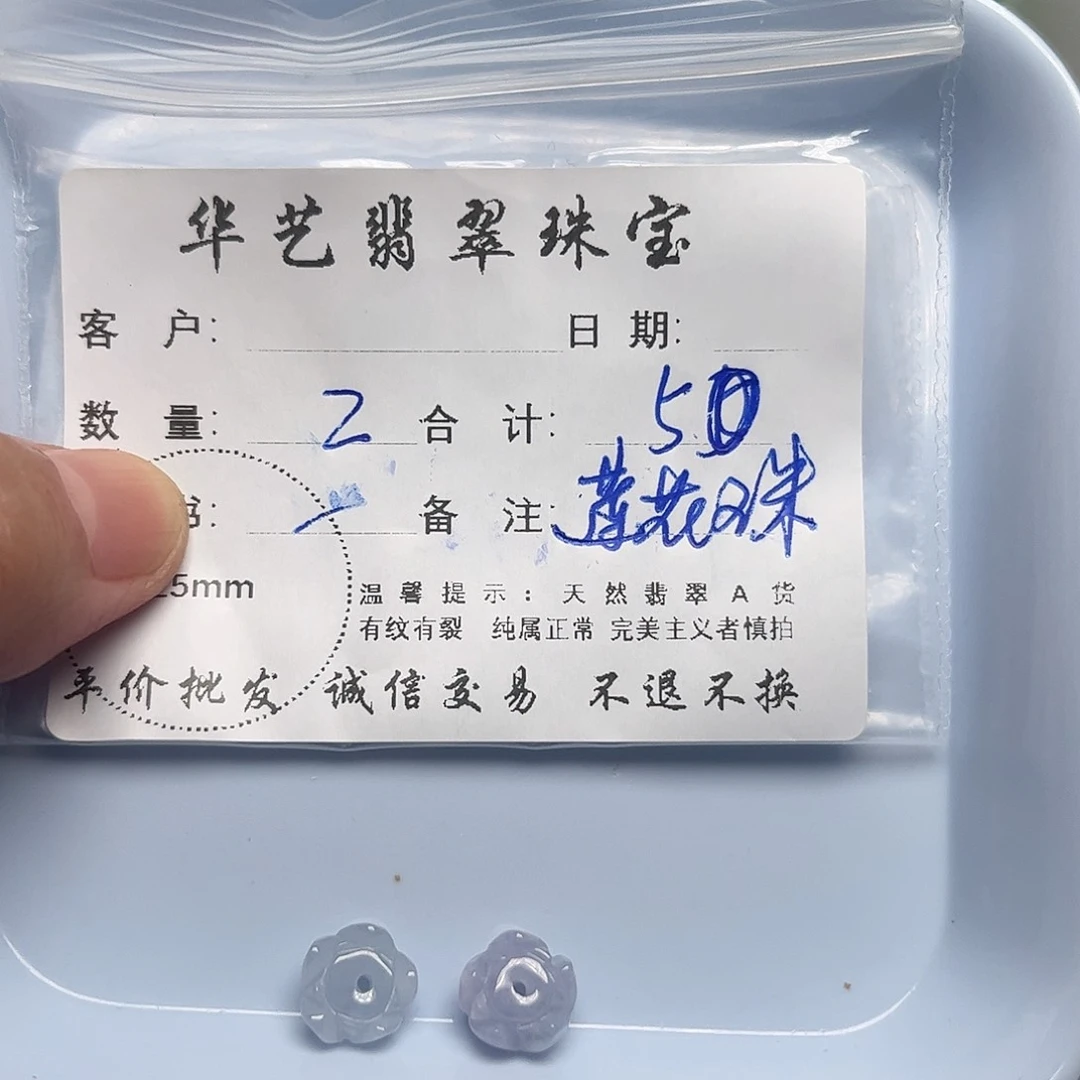 华艺翡翠珠宝
客 户: 日 期:
数 量: 2 合 计: 50
书: 备 注: 莲花 珠
5mm 温馨提示:天然翡翠A货
有纹有裂 纯属正常 完美主义者慎拍
平价批发 诚信交易 不退不换